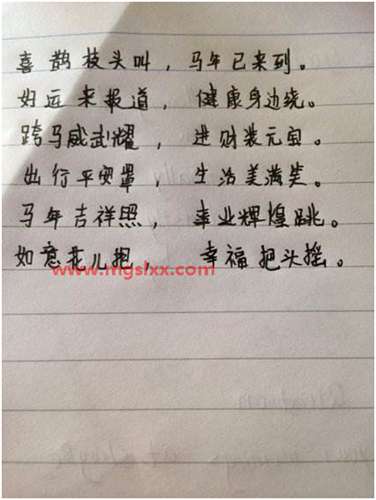 喜鹊枝头叫，马年已来到。
好运来报道，健康身边绕。
跨马威武耀，进财装元宝。
出行平安罩，生活美满笑。
马年吉祥照，事业辉煌跳。
如意花儿抱，幸福把头摇。
www.mgslxx.com